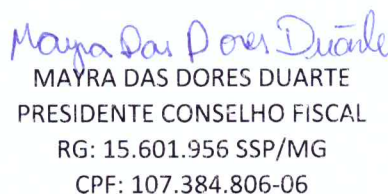 Mayra Das Dores Duarte
MAYRA DAS DORES DUARTE
PRESIDENTE CONSELHO FISCAL
RG: 15.601.956 SSP/MG
CPF: 107.384.806-06